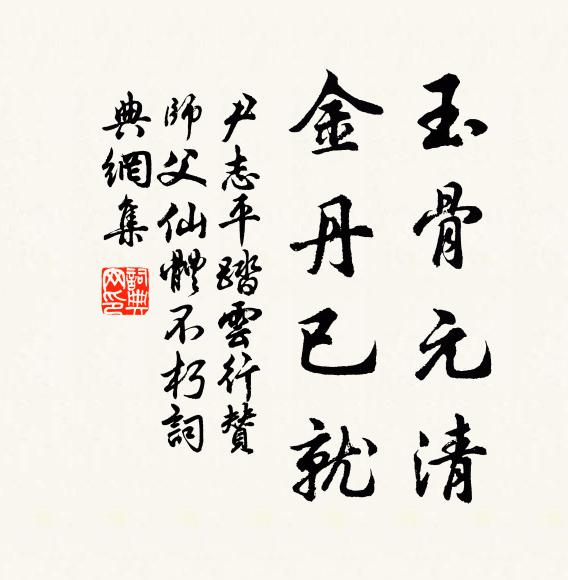 玉骨元清
金丹已就
尹志平踏雲行贊
師父仙體不朽詞
典網集
詞典網印